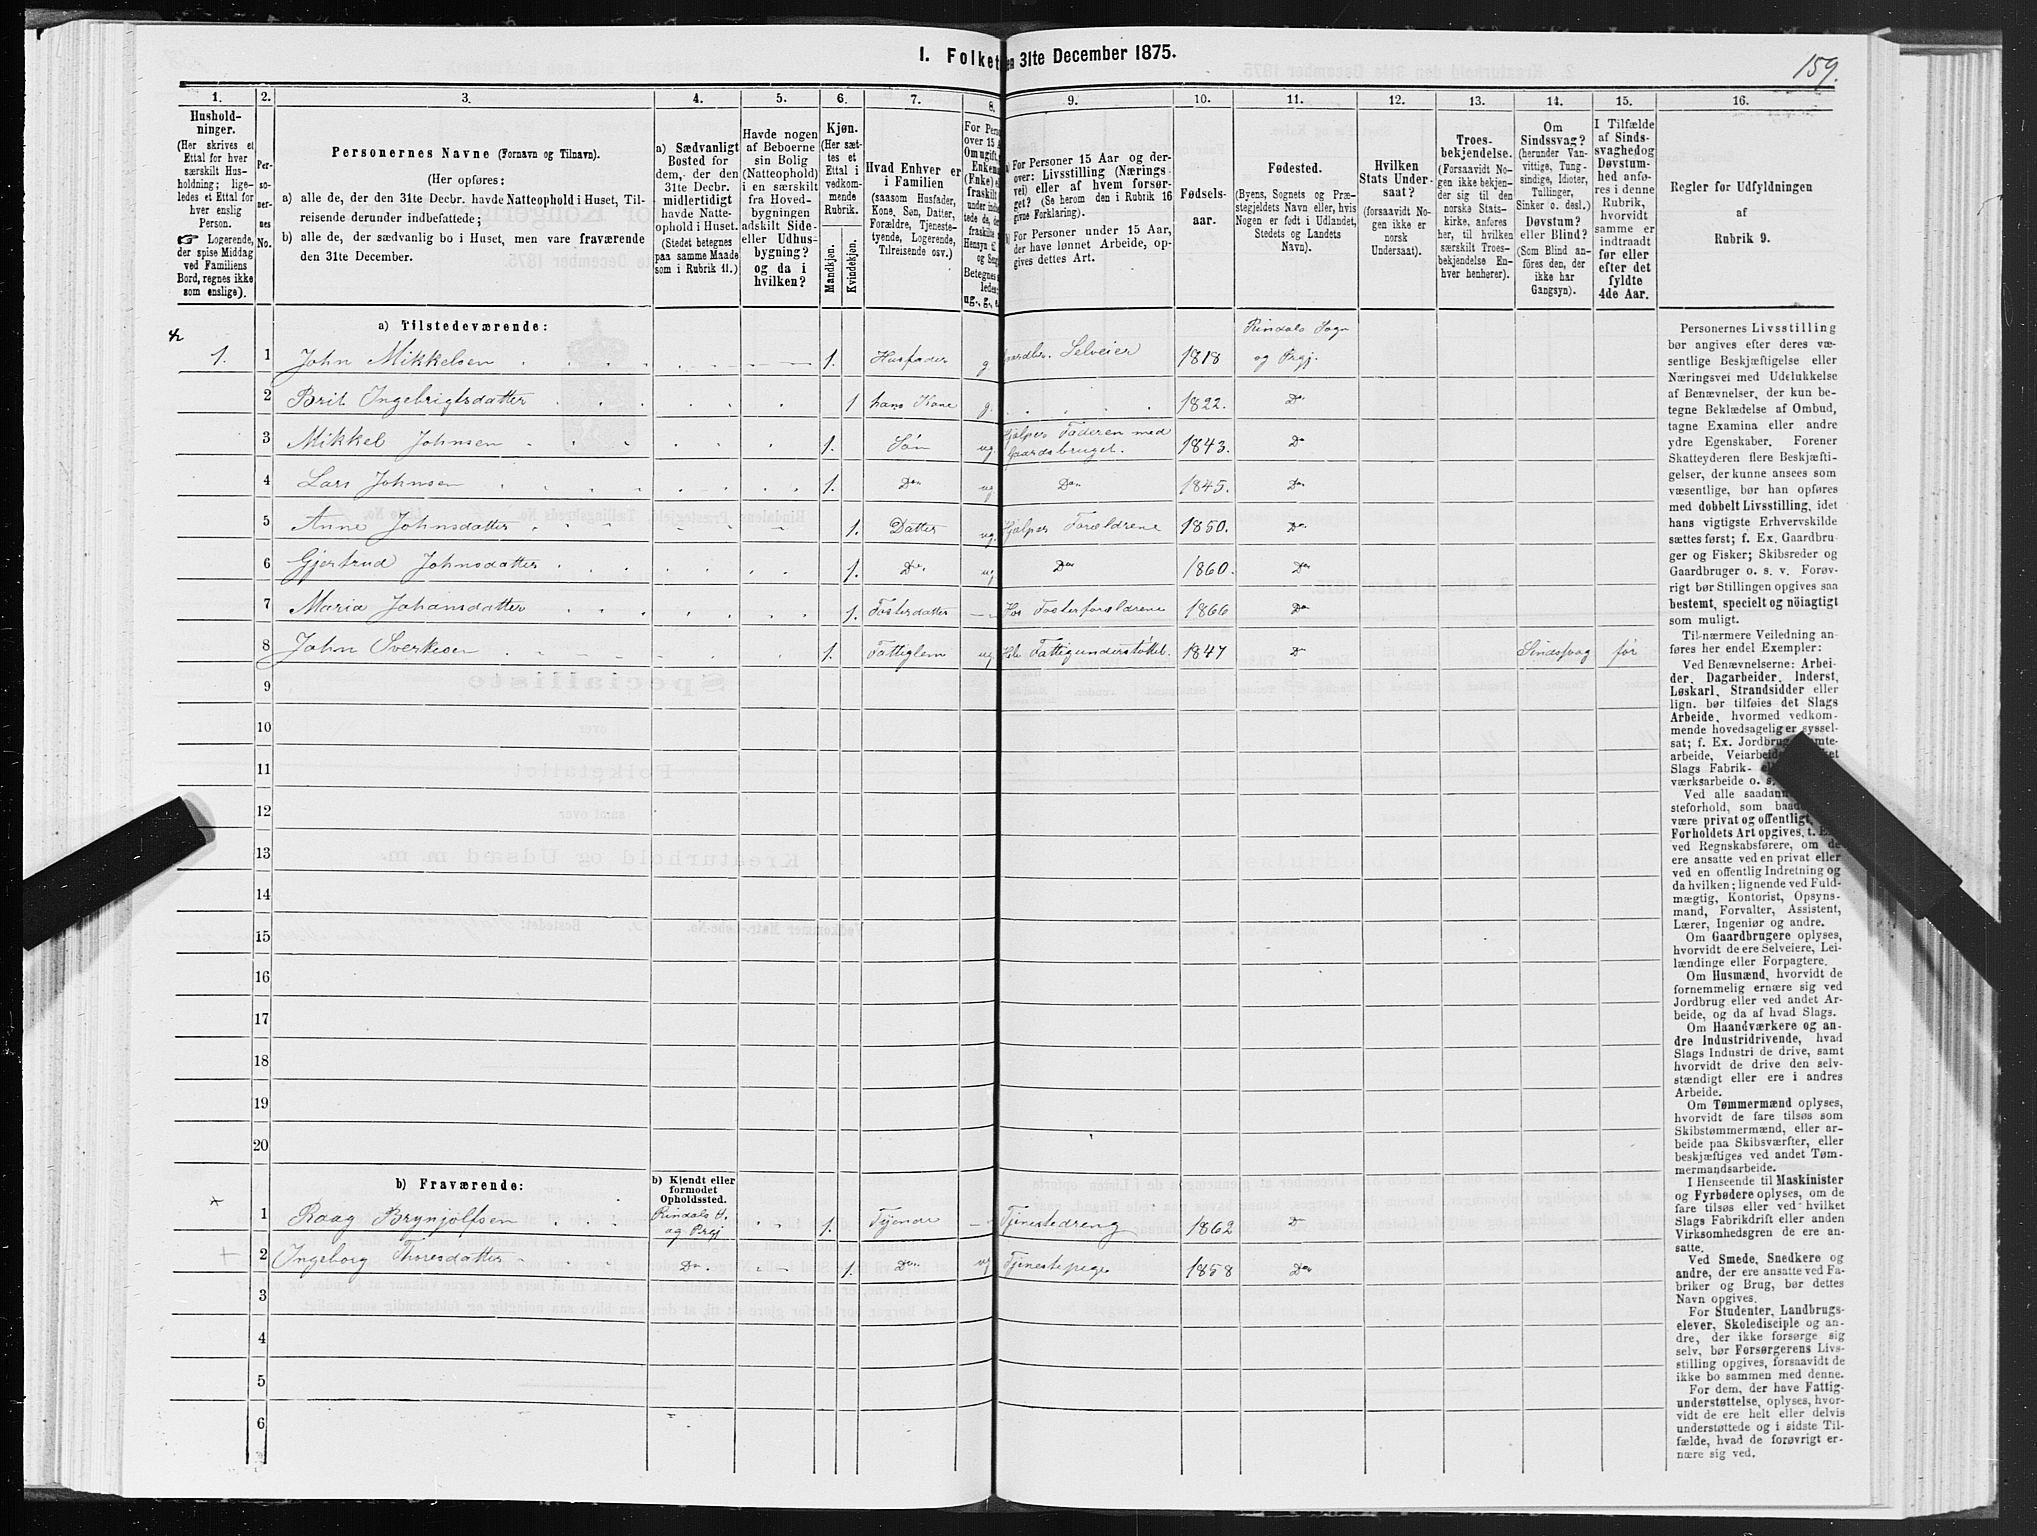 I. Folket en 31te December 1875.
159.
1. 2. 3. 4. 5. 6. 7. 8. 9. 10. 11. 12. 13. 14. 15. 16.
Hushold-
ninger.
(Her skrives et
Ettal for hver
særskilt Hus-
holdning; lige-
ledes et Ettal for
hver enslig
Person.
☞ Logerende,
der spise Middag
ved Familiens
Bord, regnes ikke
som enslige).
Per-
so-
ner-
nes
No.
Personernes Navne (Fornavn og Tilnavn).
(Her opføres:
a) alle de, der den 31te Decbr. havde Natteophold i Huset, Til-
reisende derunder indbefattede;
b) alle de, der sædvanlig bo i Huset, men vare fraværende
den 31te December.
a) Sædvanligt
Bosted for
dem, der den
31te Decbr.
midlertidigt
havde Natte-
ophold i Huset.
(Stedet betegnes
paa samme Maade
som i Rubrik 11.)
Havde nogen
af Beboerne
sin Bolig
(Natteophold)
i en særskilt
fra Hoved-
bygningen
adskilt Side-
eller Udhus-
bygning?
og da i
hvilken?
Kjøn.
(Her sæt-
tes et
Ettal i
vedkom-
mende
Rubrik.
Mandkjøn.
Kvindekjøn.
Hvad Enhver er
i Familien
(saasom Husfader,
Kone, Søn, Datter,
Forældre, Tjeneste-
tyende, Logerende,
Tilreisende osv.)
For Pers
over 15 A
Om ugift,
Enkem
(Enke) e
fraskilt
ug., g., e
For Personer 15 Aar og der-
over: Livsstilling (Nærings-
vei) eller af hvem forsør-
get? (Se herom den i Rubrik 16
givne Forklaring).
For Personer under 15 Aar,
der have lønnet Arbeide, op-
gives dettes Art.
Fødsels-
aar.
Fødested.
(Byens, Sognets og Præ-
stegjeldets Navn eller, hvis
Nogen er født i Udlandet,
Stedets og Landets
Navn).
Hvilken
Stats Under-
saat?
(forsaavidt No-
gen ikke er
norsk
Undersaat).
Troes-
bekjendelse.
(Forsaavidt No-
gen ikke bekjen-
der sig til den
norske Stats-
kirke, anføres
her, til hvilken
særskilt Troes-
bekjendelse En-
hver henhører).
Om
Sindssvag?
(herunder Van-
vittige, Tung-
sindige, Idioter,
Tullinger,
Sinker o. desl.)
Døvstum?
eller Blind?
(Som Blind an-
føres den, der
ikke har
Gangsyn).
I Tilfælde
af Sinds-
svaghed og
Døvstum-
hed anfø-
res i denne
Rubrik,
hvorvidt
samme er
indtraadt
før eller
efter det
fyldte
4de Aar.
Regler for Udfyldningen
af
Rubrik 9.
a) Tilstedeværende:
1. 1 John Mikkelsen 1. Husfader g Selveier 1818 Rindals Sogn og Prgj.
2 Brit Ingebrigtsdatter 1 hans Kone g. 1822. Do
3 Mikkel Johnsen 1. Søn ug. Hjælper Faderen med Gaardsbruget. 1843. Do
4 Lars Johnsen 1. Do ug Do 1845. Do
5 Anne Johnsdatter 1. Datter ug. Hjælper Forældrene 1850. Do
6 Gjertrud Johnsdatter 1. Do ug Do 1860. Do
7 Maria Johansdatter 1. Fosterdatter Hos Fosterforældrene 1866 Do
8 John Sverkesen 1. Fattiglem ug Fattigunderstøttet. 1847 Do Sindssvag før
9
10
11
12
13
14
15
16
17
18
19
20
b) Fraværende:
b) Kjendt eller
formodet
Opholdssted.
1 Roag Brynjolfsen Rindals og Prgj 1. Tjener Tjenestedreng 1862 Do
2 Ingeborg Thoresdatter Do 1. Do ug Tjenestepige 1858 Do
3
4
5
6
Personernes Livsstilling
bør angives efter deres væ-
sentlige Beskjæftigelse eller
Næringsvei med Udelukkelse
af Benævnelser, der kun be-
tegne Beklædelse af Ombud,
tagne Examina eller andre
ydre Egenskaber. Forener
Skatteyderen flere Beskjæfti-
gelser, der kunne ansees som
væsentlige, bør han opføres
med dobbelt Livsstilling, idet
hans vigtigste Erhvervskilde
sættes først; f. Ex. Gaardbru-
ger og Fisker; Skibsreder og
Gaardbruger o. s. v. Forøv-
rigt bør Stillingen opgives saa
bestemt, specielt og nöiagtigt
som muligt.
Til nærmere Veiledning an-
føres her endel Exempler:
Ved Benævnelserne: Arbei-
der, Dagarbeider, Inderst,
Løskarl, Strandsidder eller
lign. bør tilføies det Slags
Arbeide, hvormed vedkom-
mende hovedsagelig er syssel-
sat; f. Ex. Jordbrug, omte-
arbeide, Veiarbeide, ket
Slags Fabrik-
værksarbeide o. s.
Ved alle saadan
steforhold, som baade
være privat og offentligt,
Forholdets Art opgives, t. E
ved Regnskabsførere, om de
ere ansatte ved en privat eller
ved en offentlig Indretning og
da hvilken; lignende ved Fuld-
mægtig, Kontorist, Opsyns-
mand, Forvalter, Assistent,
Lærer, Ingeniør og andre.
Om Gaardbrugere oplyses,
hvorvidt de ere Selveiere, Lei-
lændinge eller Forpagtere.
Om Husmænd, hvorvidt de
fornemmelig ernære sig ved
Jordbrug eller ved andet Ar-
beide, og da af hvad Slags.
Om Haandværkere og an-
dre Industridrivende, hvad
Slags Industri de drive, samt
hvorvidt de drive den selv-
stændigt eller ere i andres
Arbeide.
Om Tømmermænd oplyses,
hvorvidt de fare tilsøs som
Skibstømmermænd, eller ar-
beide paa Skibsværfter, eller
beskjæftiges ved andet Tøm-
mermandsarbeide.
I Henseende til Maskinister
og Fyrbødere oplyses, om de
fare tilsøs eller ved hvilket
Slags Fabrikdrift eller anden
Virksomhedsgren de ere an-
satte.
Ved Smede, Snedkere og
andre, der ere ansatte ved Fa-
briker og Brug, bør dettes
Navn opgives.
For Studenter, Landbrugs-
elever, Skoledisciple og an-
dre, der ikke forsørge sig
selv, bør Forsørgerens Livs-
stilling opgives, forsaavidt de
ikke bo sammen med denne.
For dem, der have Fattig-
understøttelse, oplyses, hvor-
vidt de ere helt eller delvis
understøttede og i sidste Til-
fælde, hvad de forøvrigt er-
nære sig ved.